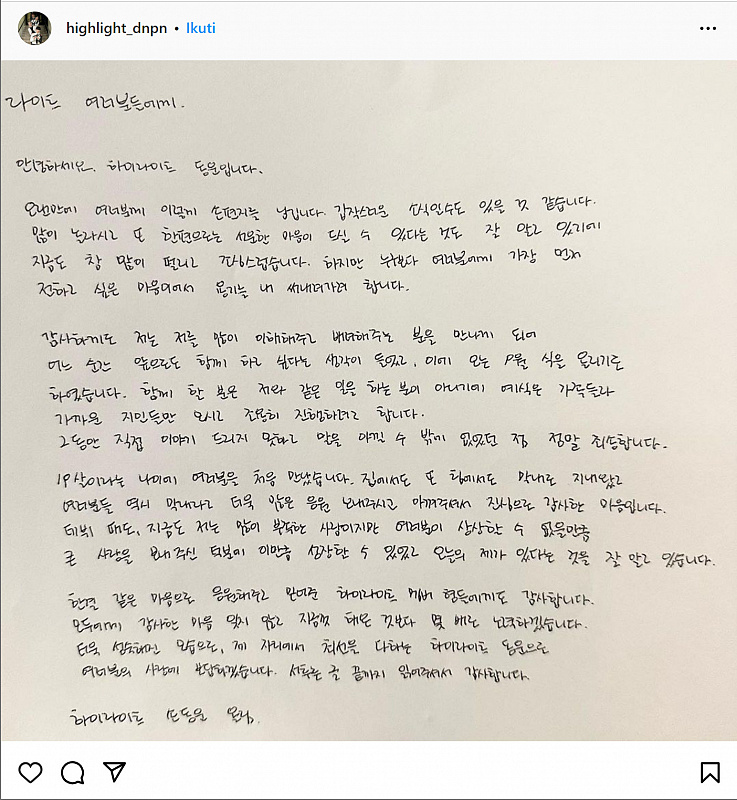 highlight_dnpn • Ikuti
라이트 여러분들에게.
안녕하세요. 하이라이트 동운입니다.
오랜만에 여러분께 이렇게 손편지를 남깁니다. 갑작스러운 소식일수도 있을 것 같습니다.
많이 놀라시고 또 한편으로는 서운한 마음이 드실 수 있다는 것도 잘 알고 있기에
지금도 참 많이 떨리고 조심스럽습니다. 하지만 누구보다 여러분에게 가장 먼저
전하고 싶은 마음이어서 용기를 내 써내려가려 합니다.
감사하게도 저는 저를 많이 이해해주고 배려해주는 분을 만나게 되어
어느 순간 앞으로도 함께 하고 싶다는 생각이 들었고, 이에 오는 9월 식을 올리기로
하였습니다. 함께 할 분은 저와 같은 일을 하는 분이 아니기에 예식은 가족들과
가까운 지인들만 모시고 조용히 진행하려고 합니다.
그동안 직접 이야기 드리지 못하고 말을 아낄 수 밖에 없었던 점 정말 죄송합니다.
19살이라는 나이에 여러분을 처음 만났습니다. 집에서도 또 팀에서도 막내로 지내왔고
여러분들 역시 막내라고 더욱 많은 응원 보내주시고 아껴주셔서 진심으로 감사한 마음입니다.
데뷔 때도, 지금도 저는 많이 부족한 사람이지만 여러분이 상상할 수 없을만큼
큰 사랑을 보내 주신 덕분에 이만큼 성장할 수 있었고 오늘의 제가 있다는 것을 잘 알고 있습니다.
한결 같은 마음으로 응원해주고 믿어준 하이라이트 멤버 형들에게도 감사합니다.
모두에게 감사한 마음 잊지 않고 지금껏 해온 것보다 몇 배로 노력하겠습니다.
더욱 성숙해진 모습으로, 제 자리에서 최선을 다하는 하이라이트 동운으로
여러분의 사랑에 보답하겠습니다. 서투른 글 끝까지 읽어주셔서 감사합니다.
하이라이트 손동운 올림.